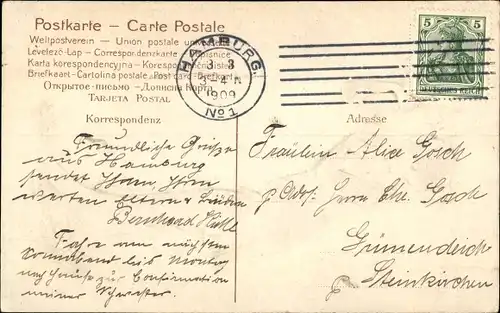 Postkarte – Carte Postale
Weltpostverein – Union postale
Levelező-Lap – Correspondenzkarte
Karta korespondencyjna –
Briefkaart – Cartolina postale – Post card – Brefkort
Открытое письмо –
TARJETA POSTAL
HAMBURG.
3 3
1909
No 1
5 5
DEUTSCHES REICH
Korrespondenz
Adresse
Freundliche Grüße
aus Hamburg
sendet Ihnen Ihren
werten Eltern &
Bernhard
Fahre am nächsten
Sonnabend bis Montag
nach Hause zur Confirmation
meiner Schwester.
Fräulein Alice Gosch
p. Adr. Herrn Chr. Gosch
Grünendeich
Steinkirchen